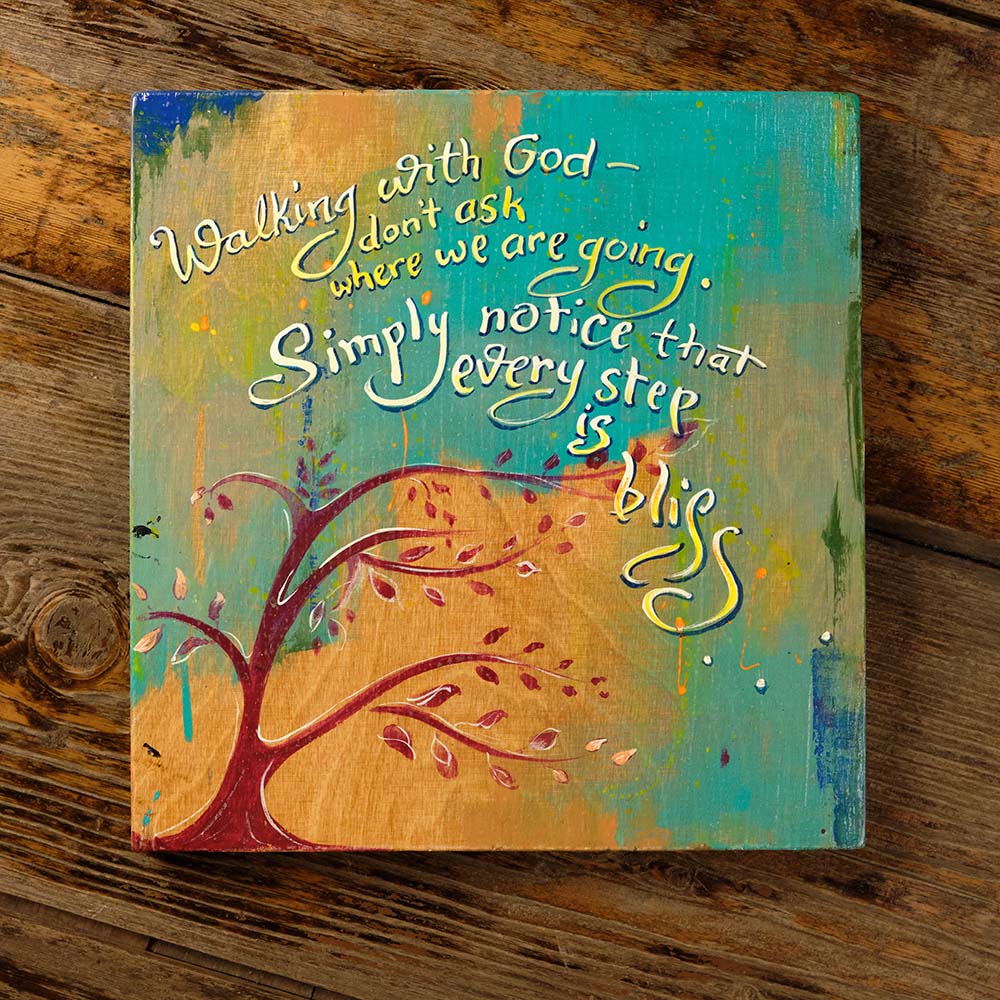 Walking with God —
don't ask
where we are going.
Simply notice that
every step
is
bliss